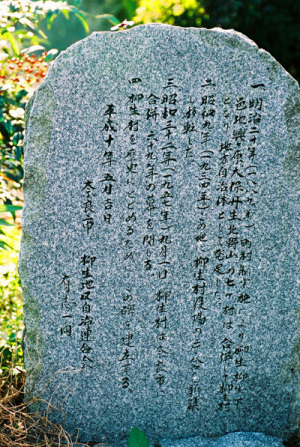 一 明治二十二年(一八八九年)町村制の施行により柳生 柳生下
邑地 興ヶ原 大保 丹生 北野山の七ヶ村は 合併し柳生村
となり 地方自治体として発足した
二 昭和九年(一九三四年)この地に柳生村役場の庁舎を新築
し移転した
三 昭和三十二年(一九五七年)九月一日 柳生村は奈良市に
合併 六十九年の幕を閉る
四 柳生村を歴史にとどめるため この碑を建立する
平成十年 五月三日
奈良市 柳生地区自治連合会
有志一同